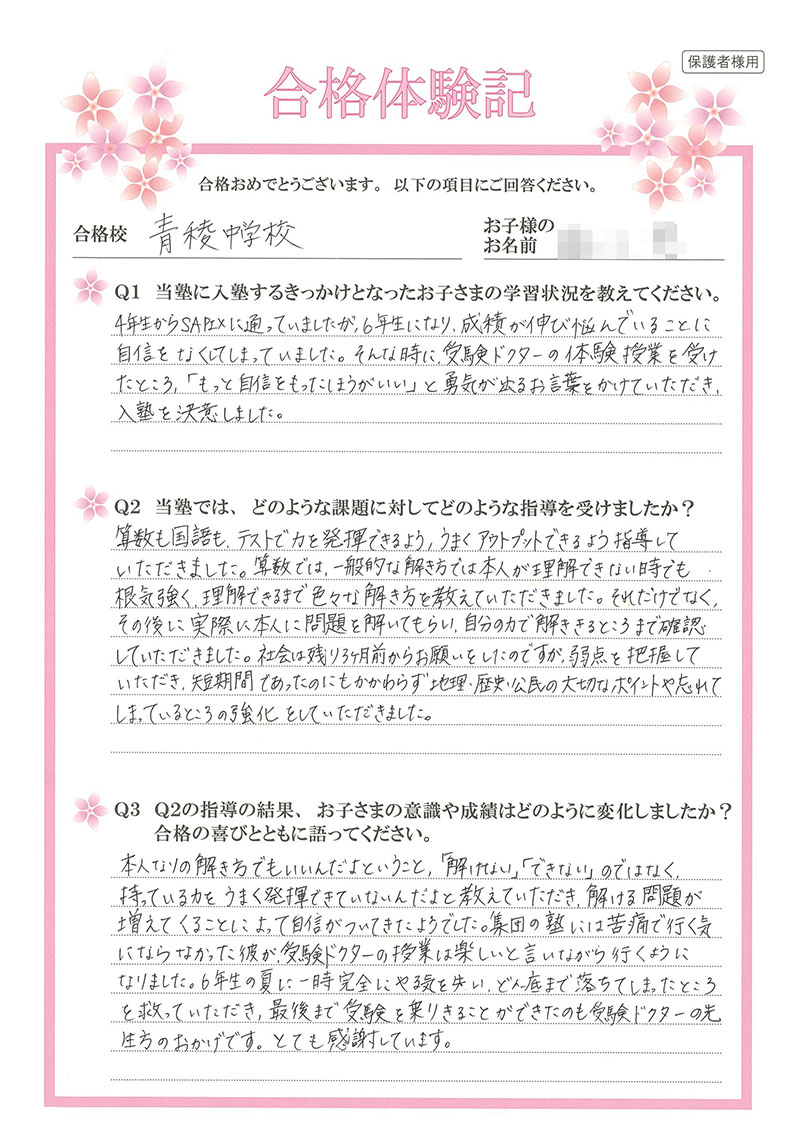 保護者様用
合格体験記
合格おめでとうございます。以下の項目にご回答ください。
合格校 青稜中学校
お子様の
お名前
Q1 当塾に入塾するきっかけとなったお子さまの学習状況を教えてください。
4年生からSAPIXに通っていましたが、6年生になり、成績が伸び悩んでいることに
自信をなくしてしまっていました。そんな時に、受験ドクターの体験授業を受け
たところ、「もっと自信をもったほうがいい」と勇気が出るお言葉をかけていただき、
入塾を決意しました。
Q2 当塾では、どのような課題に対してどのような指導を受けましたか？
算数も国語も、テストで力を発揮できるよう、うまくアウトプットできるよう指導して
いただきました。算数では、一般的な解き方では本人が理解できない時でも
根気強く、理解できるまで色々な解き方を教えていただきました。それだけでなく、
その後に実際に本人に問題を解いてもらい、自分の力で解ききるところまで確認
していただきました。社会は残り3ヶ月前からお願いをしたのですが、弱点を把握して
いただき、短期間であったのにもかかわらず地理・歴史・公民の大切なポイントや忘れて
しまっているところの強化をしていただきました。
Q3 Q2の指導の結果、お子さまの意識や成績はどのように変化しましたか？
合格の喜びとともに語ってください。
本人なりの解き方でもいいんだよということ、「解けない」「できない」のではなく、
持っている力をうまく発揮できていないんだよと教えていただき、解ける問題が
増えてくることによって自信がついてきたようでした。集団の塾には苦痛で行く気
にならなかった彼が、受験ドクターの授業は楽しいと言いながら行くように
なりました。6年生の夏に一時完全にやる気を失い、どん底まで落ちてしまったところ
を救っていただき、最後まで受験を乗りきることができたのも受験ドクターの先
生方のおかげです。とても感謝しています。